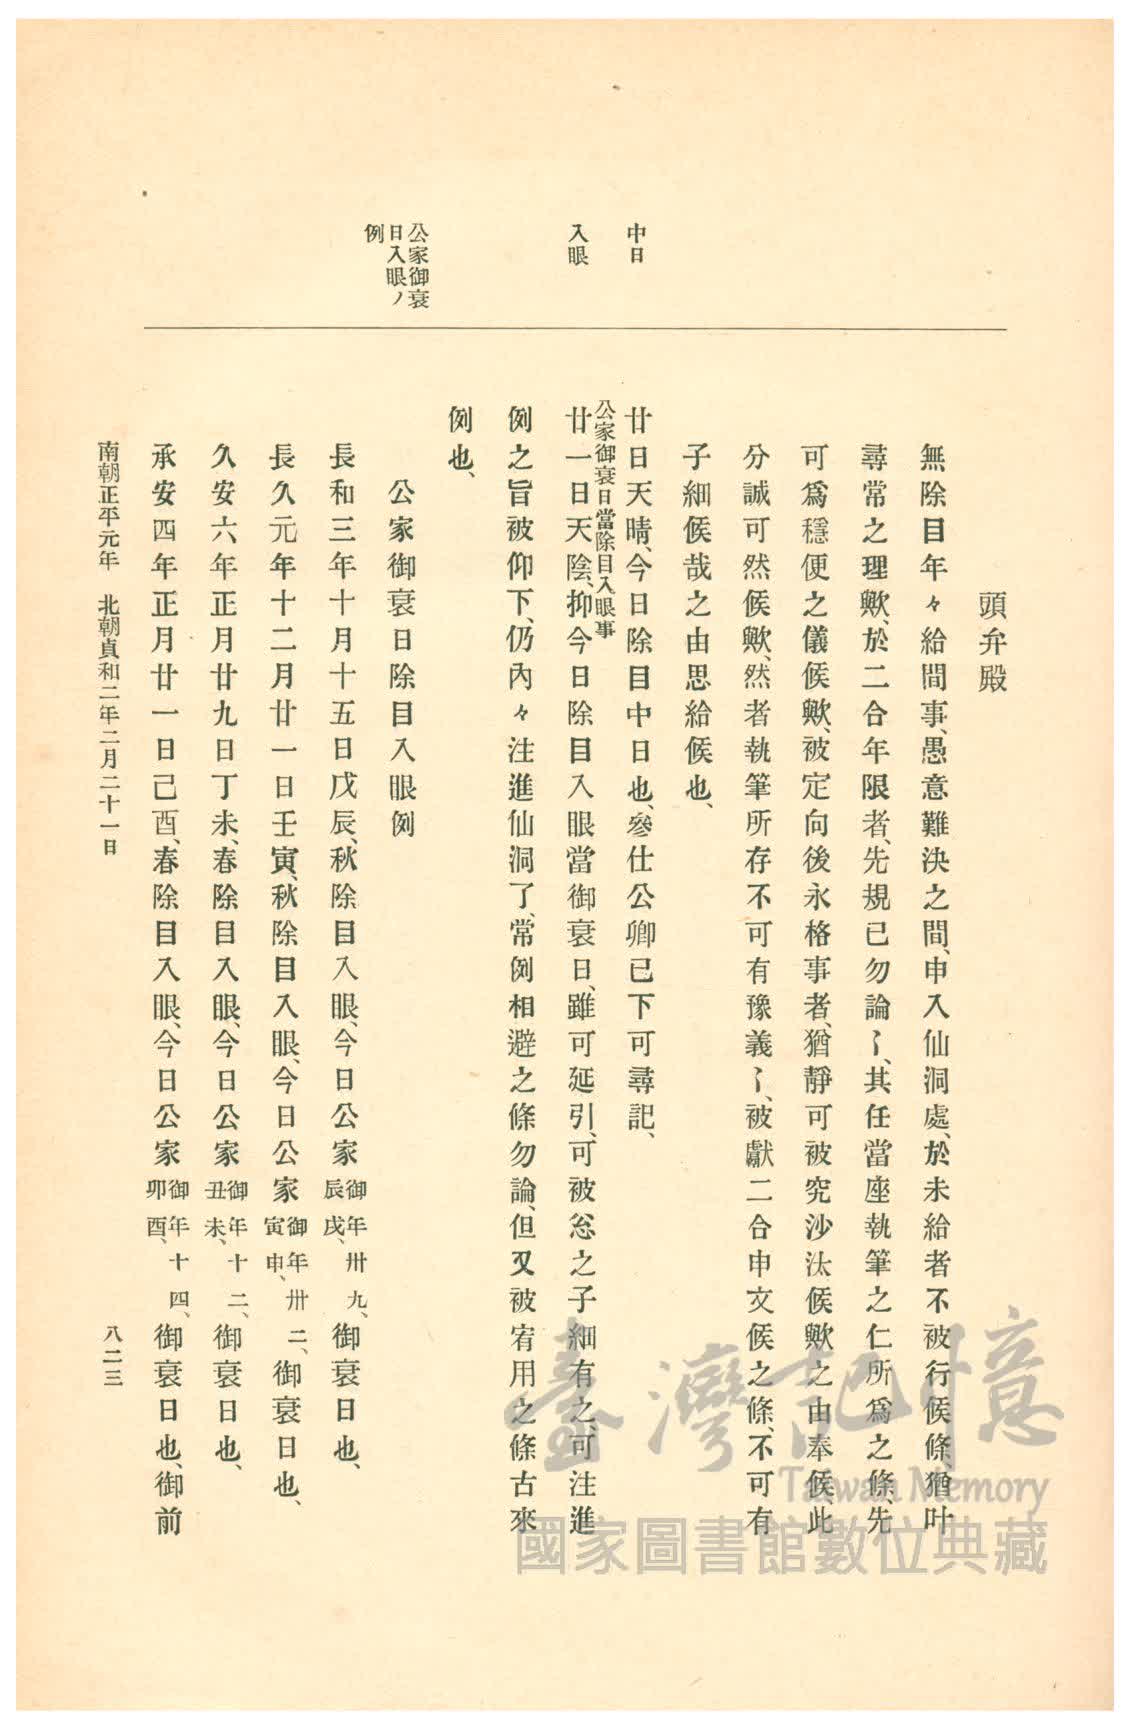 中日
入眼
公家御衰
日入眼ノ
例
頭弁殿
無除目年々給間事、愚意難決之間、申入仙洞處、於未給者不被行候條、猶叶
尋常之理歟、於二合年限者、先規已勿論〻、其任當座執筆之仁所爲之條、先
可爲穩便之儀候歟、被定向後永格事者、猶靜可被究沙汰候歟之由奉候、此
分誠可然候歟、然者執筆所存不可有豫義〻、被獻二合申文候之條、不可有
子細候哉之由思給候也、
廿日天晴、今日除目中日也、參仕公卿已下可尋記、
公家御衰日當除目入眼事
廿一日天陰、抑今日除目入眼當御衰日、雖可延引、可被忩之子細有之、可注進
例之旨被仰下、仍內々注進仙洞了、常例相避之條勿論、但又被宥用之條古來
例也、
公家御衰日除目入眼例
長和三年十月十五日戊辰、秋除目入眼、今日公家御年卅九、辰戌、御衰日也、
長久元年十二月廿一日壬寅、秋除目入眼、今日公家御年卅二、寅申、御衰日也、
久安六年正月廿九日丁未、春除目入眼、今日公家御年十二、丑未、御衰日也、
承安四年正月廿一日己酉、春除目入眼、今日公家御年十四、卯酉、御衰日也、御前
南朝正平元年　北朝貞和二年二月二十一日
八二三
臺灣記憶
Taiwan Memory
國家圖書館數位典藏